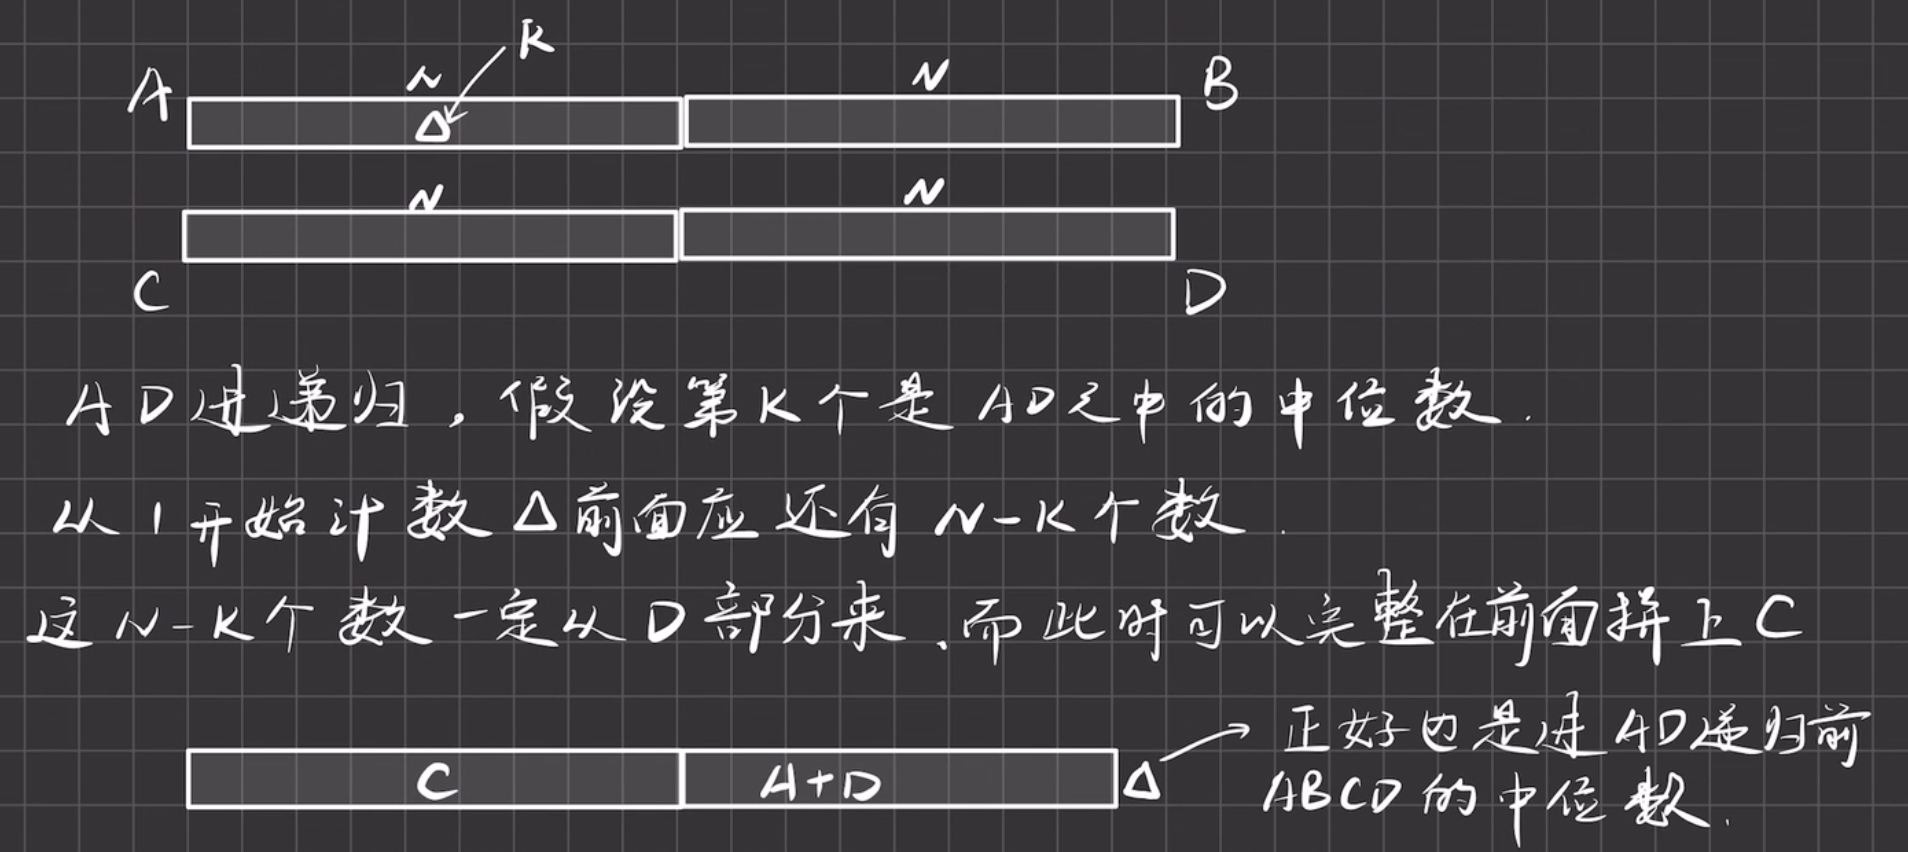 K
A N N B
△
N N
C D
AD进递归，假设第K个是AD之中的中位数.
从1开始计数△前面应还有N-K个数.
这N-K个数一定从D部分来,而此时可以完整在前面拼上C
C A+D △ 正好也是进AD递归前
ABCD的中位数.